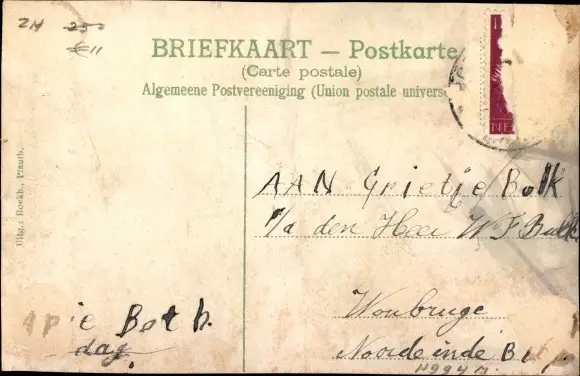 ZH 250
€11
BRIEFKAART — Postkarte
(Carte postale)
Algemeene Postvereeniging (Union postale universe
NE
Uitg.: Boekh., Plaum.
AAN Grietje Balk
p/a den Heer W F Balk
Woubruge
Noordeinde B
Both.
dag.